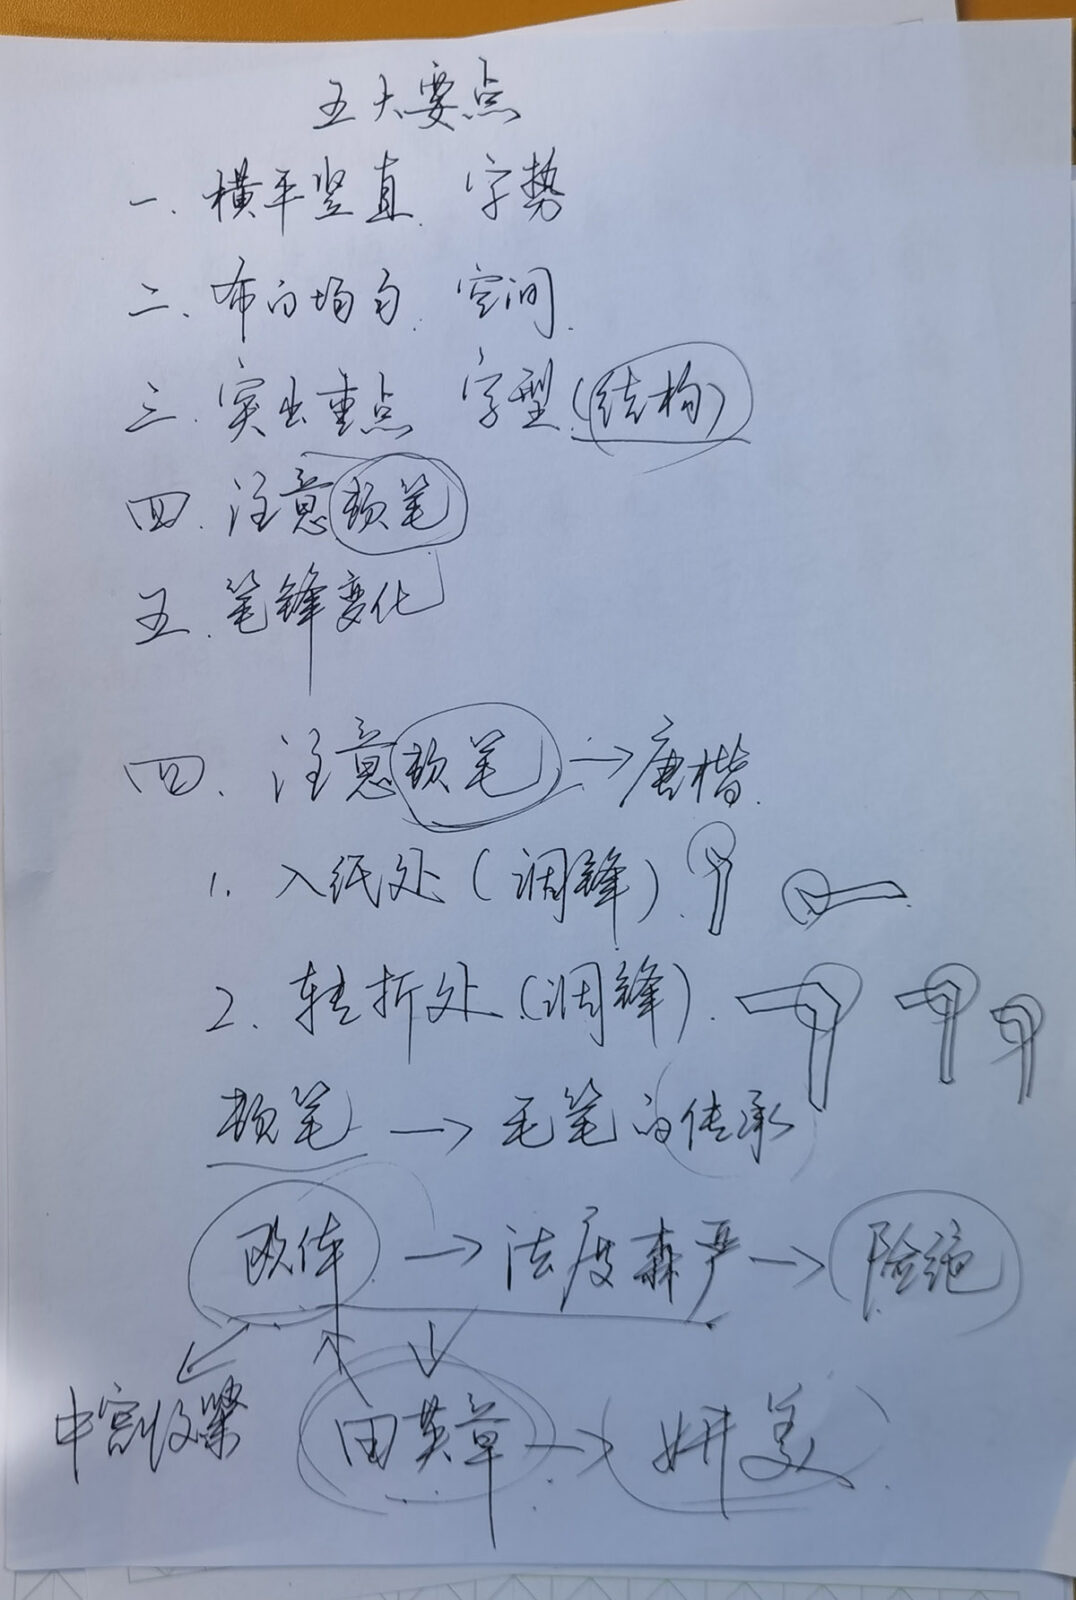 五大要点
一. 横平竖直. 字势
二. 布白均匀. 空间.
三. 突出重点 字型(结构)
四. 注意软笔
五. 笔锋变化
四. 注意软笔→唐楷.
1. 入纸处(调锋).
2. 转折处(调锋).
软笔→毛笔的传承
欧体→法度森严→险绝
中宫收紧 田英章→妍美.